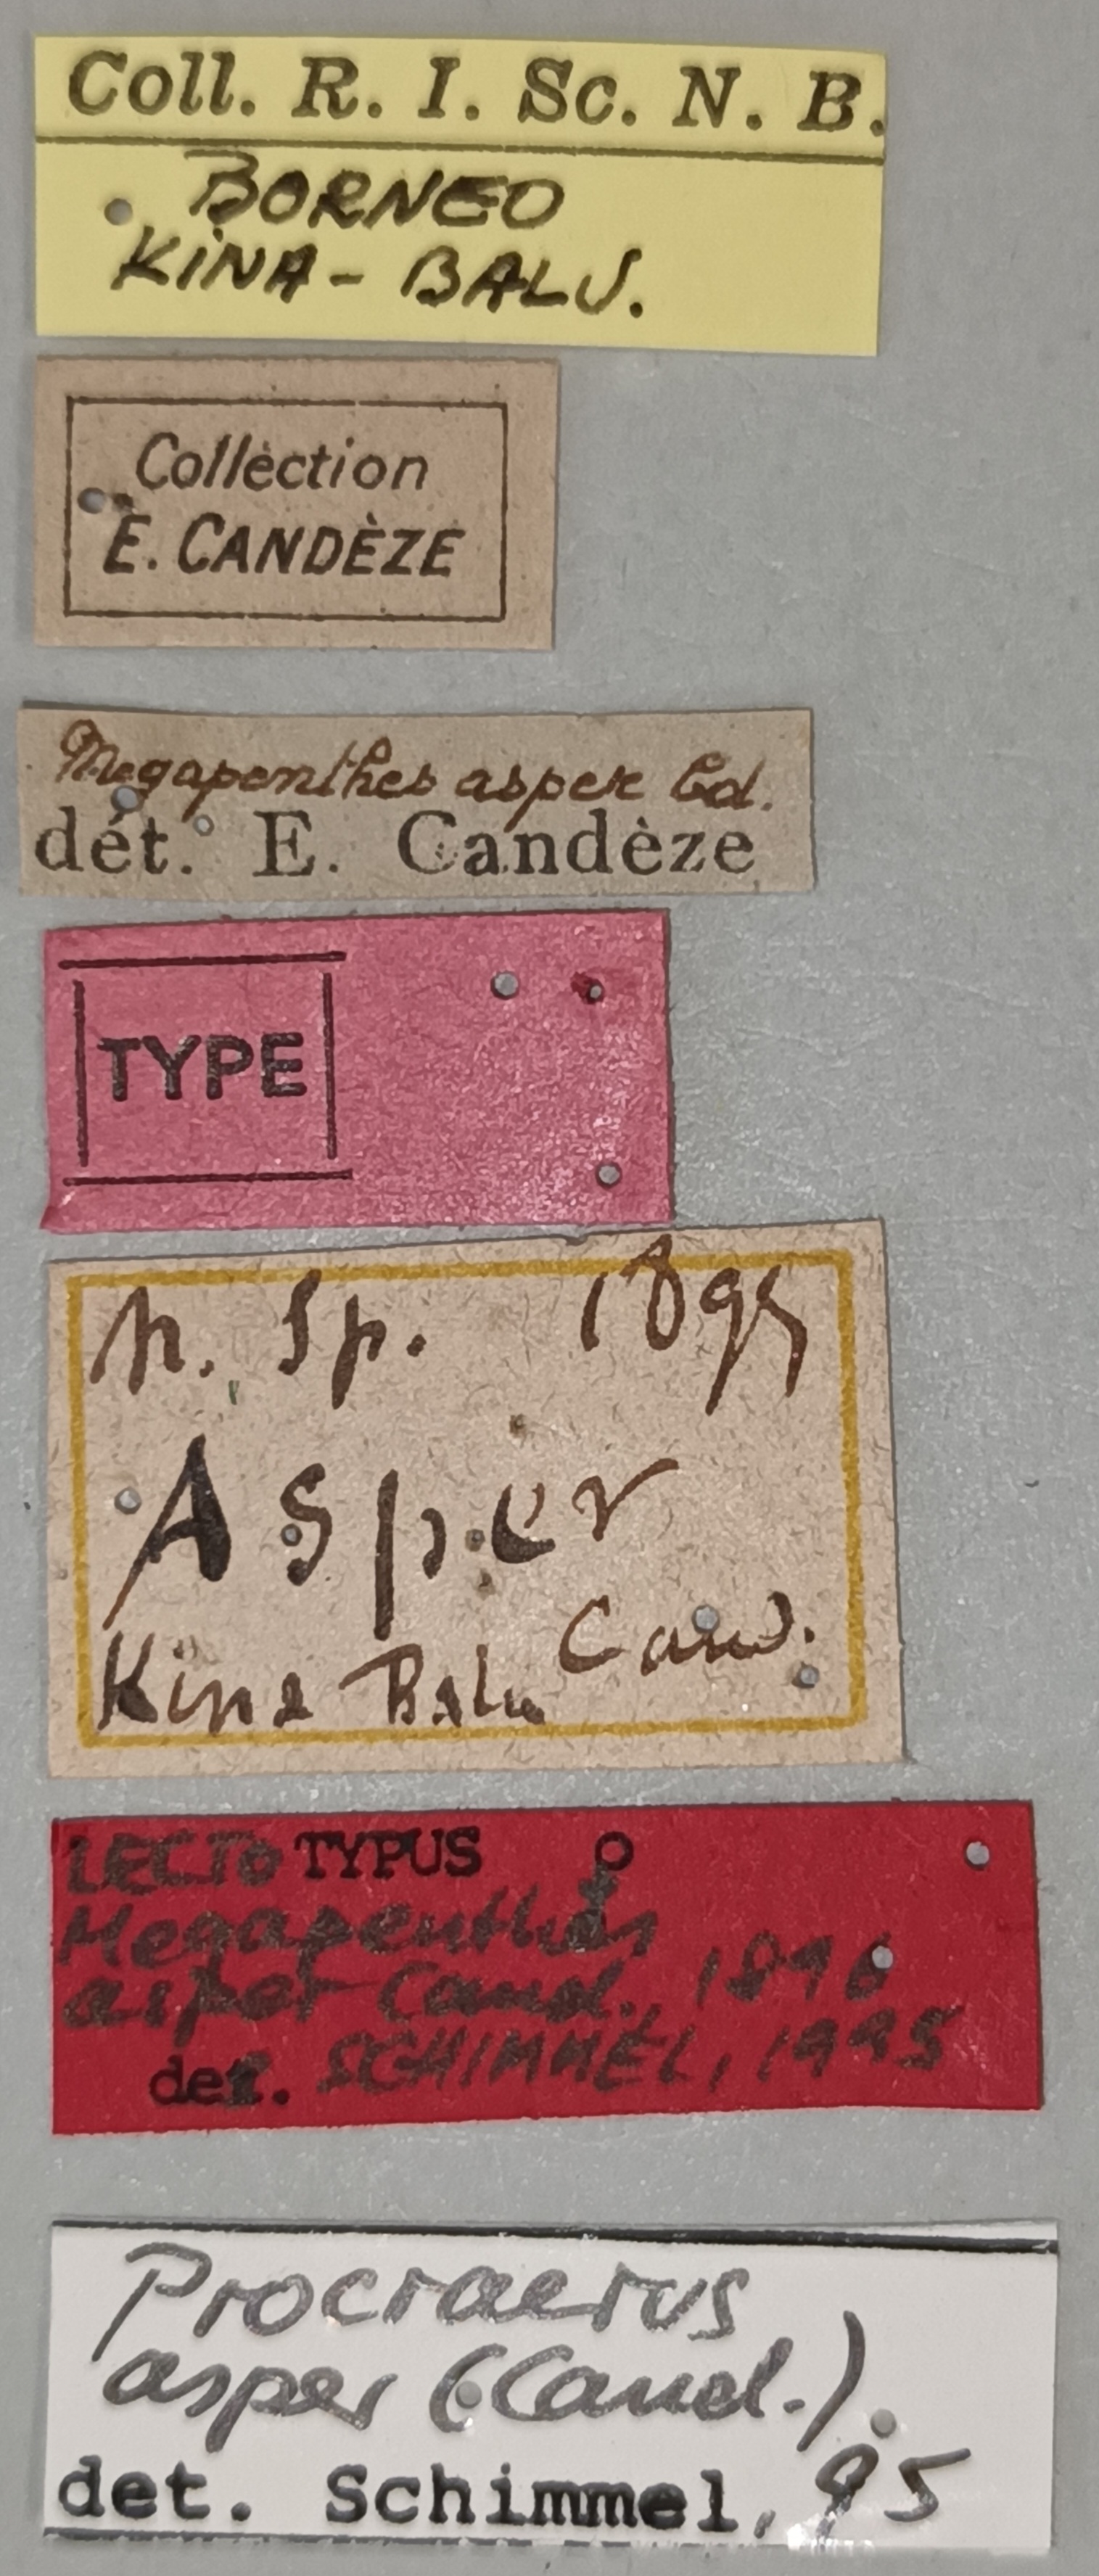 Coll. R. I. Sc. N. B.
BORNEO
KINA-BALU.
Collection
E. CANDÈZE
Megapenthes asper Cd.
dét. E. Candèze
TYPE
n. sp. 1895
Asper
Cand.
Kina Balu
LECTOTYPUS ♀
Megapenthes
asper Cand., 1896
det. SCHIMMEL, 1995
Procraerus
asper (Cand.)
det. Schimmel, 95